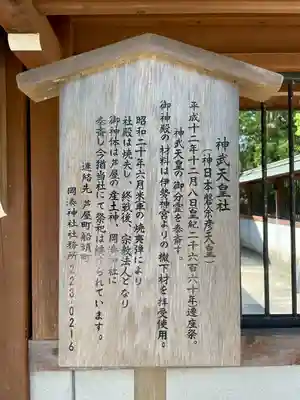 神武天皇社
（神日本磐余彦天皇）
平成十二年十二月八日皇紀二千六百六十年遷座祭。
神武天皇の御分霊を奉斎す。
御神殿の材料は伊勢神宮よりの撤下材を拝受使用。
昭和二十年六月米軍の焼夷弾により
社殿は焼失し、終戦後、宗教法人となり
御神体は芦屋の産土神、岡湊神社に
奉斎し今猶当社にて祭祀は続けられています。
連絡先 芦屋町船頭町
岡湊神社社務所 223-0216